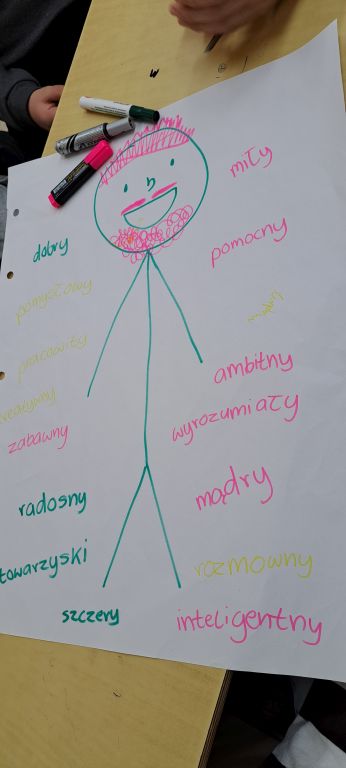 miły
dobry
pomocny
pomysłowy
pracowity
ambitny
kreatywny
zabawny
wyrozumiały
mądry
radosny
towarzyski
rozmowny
szczery
inteligentny